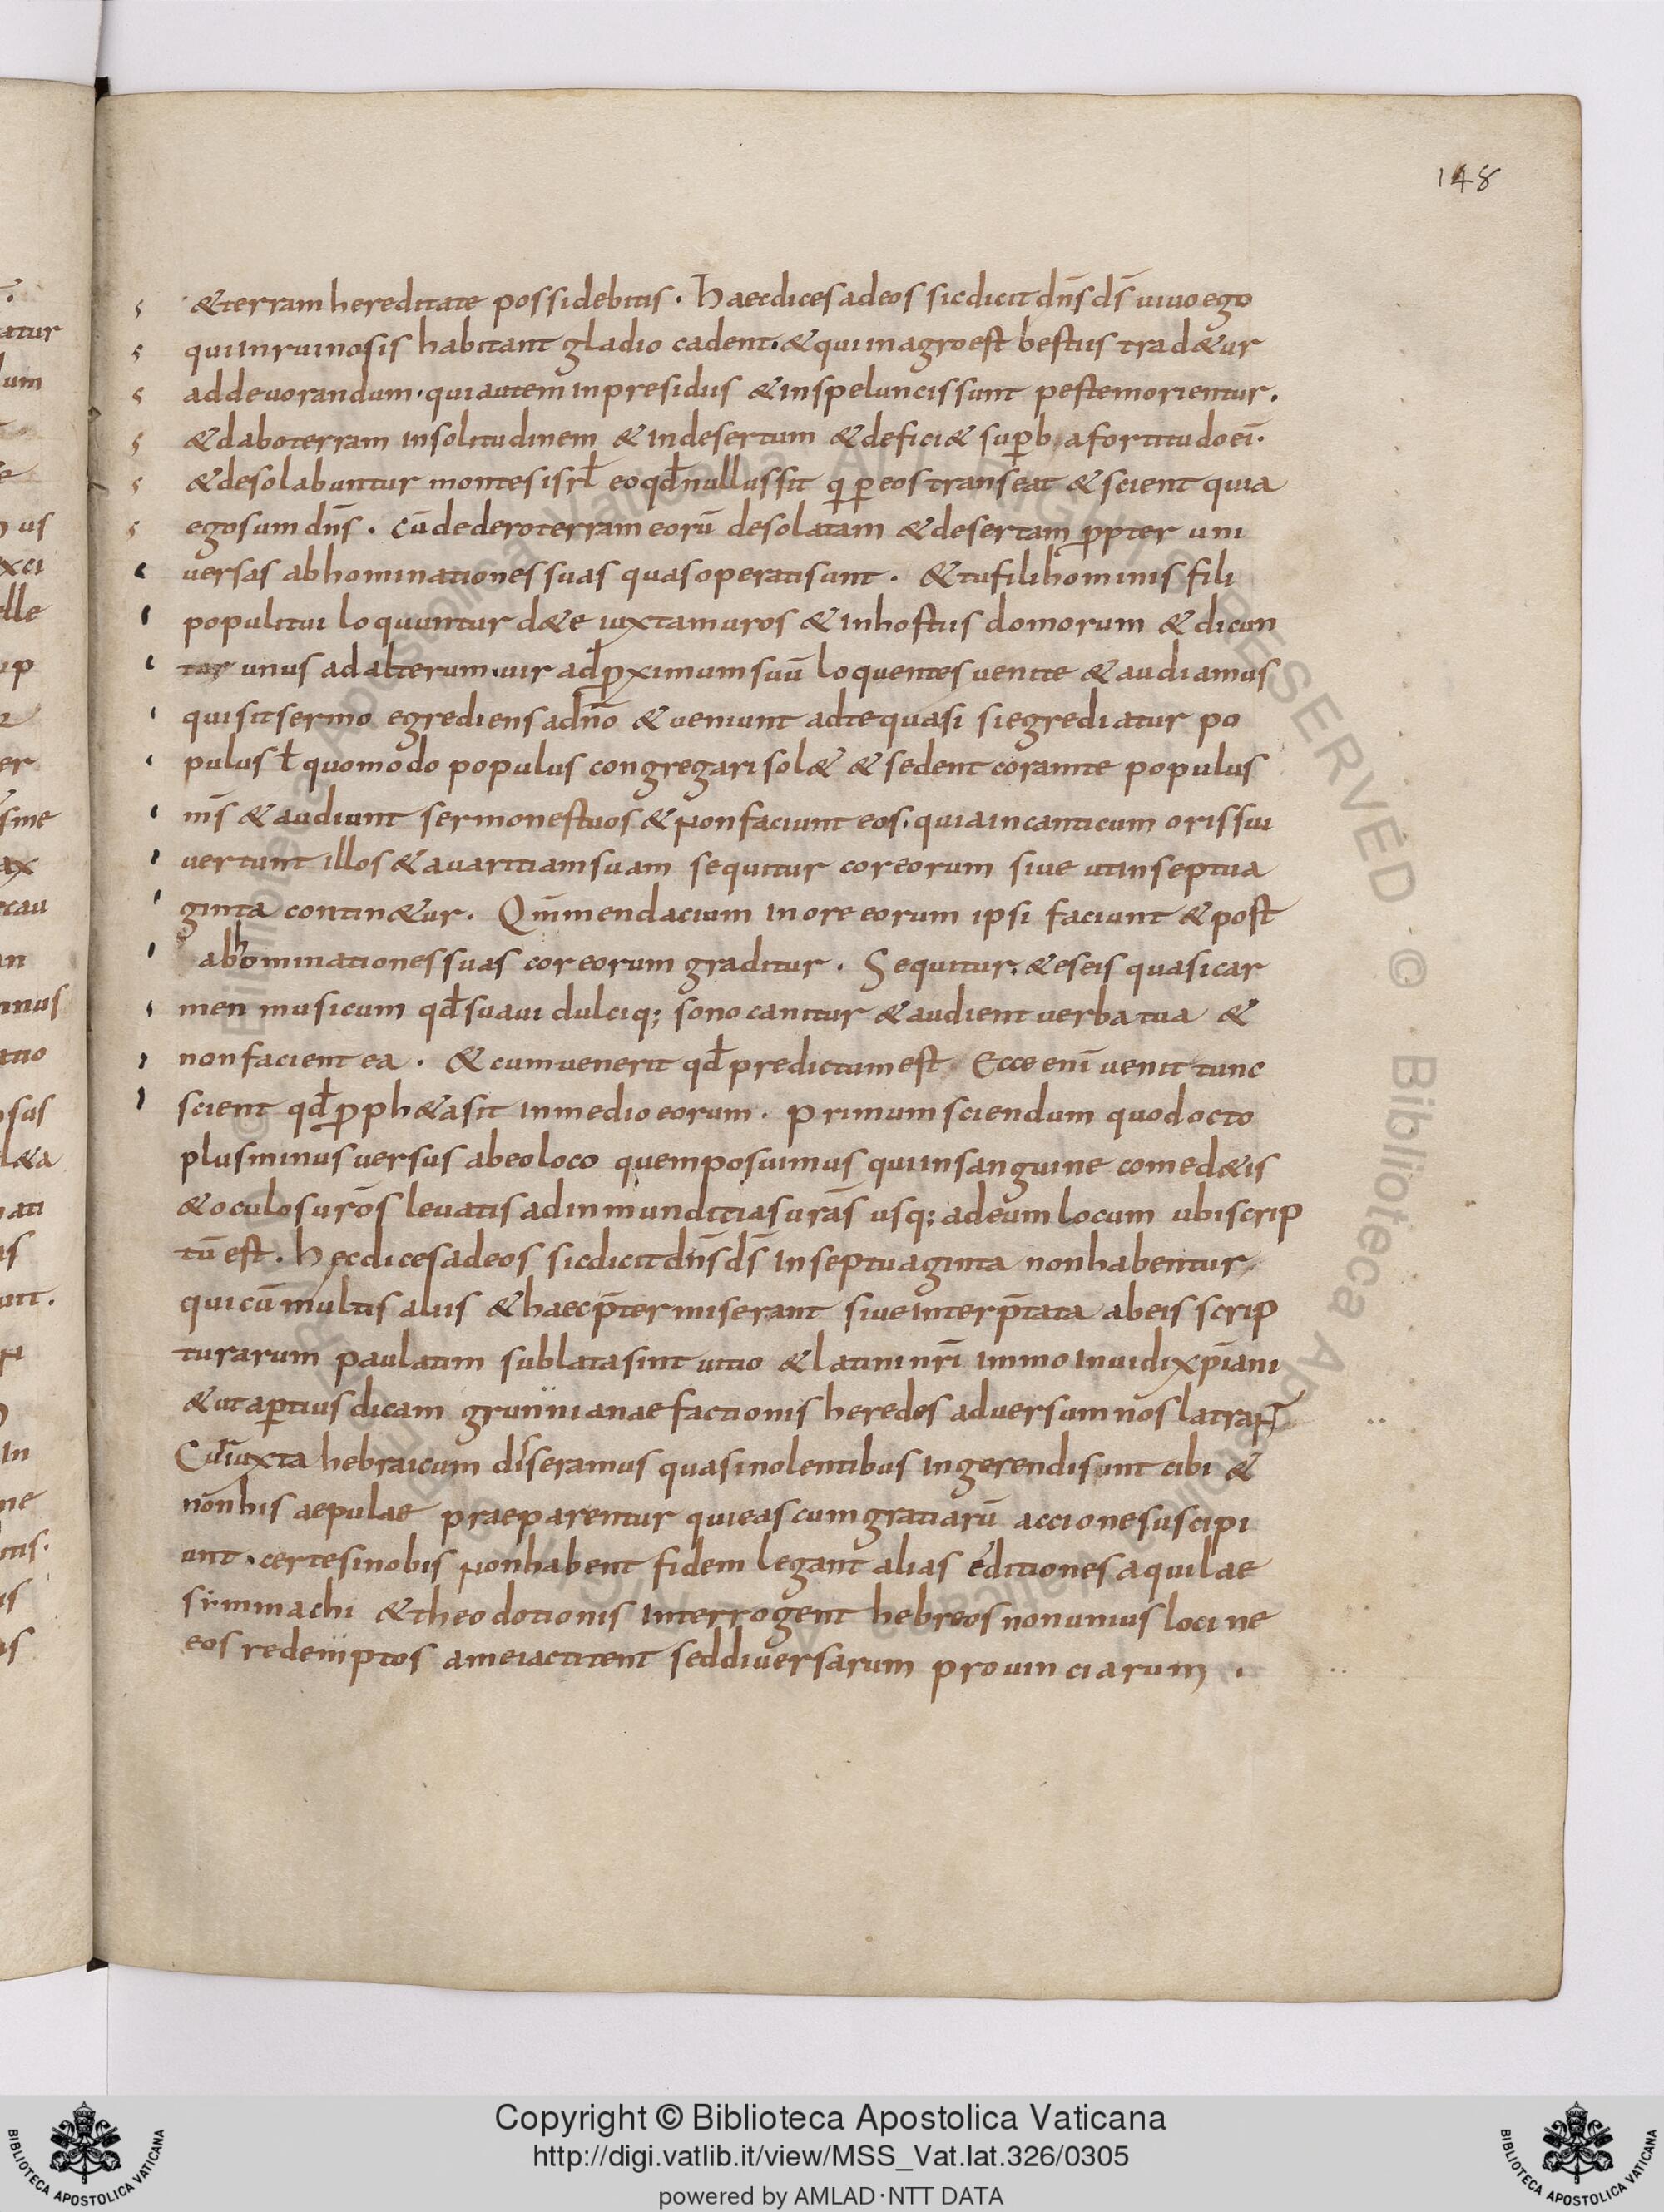 148
& terram hereditate possidebitis. Haec dices ad eos sic dicit dn̄s ds̄ uiuo ego
qui in ruinosis habitant gladio cadent. & qui in agro est bestiis trad&ur
ad deuorandum. qui autem in presidiis & in speluncis sunt peste morientur.
& dabo terram in solitudinem & in desertum & defici& sup̱ba fortitudo ei̅.
& desolabuntur montes isrł eo qđ nullus sit qi p̱ eos transeat & scient quia
ego sum dn̄s. cū dedero terram eorū desolatam & desertam ꝓpter uni
uersas abhominationes suas quas operati sunt. & tu fili hominis fili
populi tui loquuntur de te iuxta muros & in hostiis domorum & dicun
tur unus ad alterum. uir ad ꝓximum suū loquentes uenite & audiamus
qui sit sermo egrediens a dn̄o & ueniunt ad te quasi si egrediatur po
pulus ł quomodo populus congregari sol& & sedent coram te populus
m̄s & audiunt sermones tuos & non faciunt eos. quia in canticum oris sui
uertunt illos & auaritiam suam sequitur cor eorum siue ut in septua
ginta contin&ur. Qm̄ mendacium in ore eorum ipsi faciunt & post
abhominationes suas cor eorum graditur. Sequitur. & es eis quasi car
men musicum qđ suaui dulciq; sono canitur & audient uerba tua &
non facient ea. & cum uenerit qđ predictum est. Ecce eni̅ uenit tunc
scient qđ ꝓph&a sit in medio eorum. primum sciendum quod octo
plus minus uersus ab eo loco quem posuimus qui in sanguine comed&is
& oculos urōs leuatis ad inmunditias urās usq; ad eum locum ubi scrip
tū est. hęc dices ad eos sic dicit dn̄s ds̄ in septuaginta non habentur
qui cū multis aliis & haec p̄termiserant siue interp̄tata ab eis scrip
turarum paulatim sublata sint uitio & latini nr̄i immo inuidi xp̄iani
& ut ap̱tius dicam grunnianae factionis heredes aduersum nos latrant
Cur̄ iuxta hebraicum diseramus quasi nolentibus ingerendi sunt cibi &
non his aepulae praeparentur qui eas cum gratiarū accione suscipi
unt. certe si nobis non habent fidem legant alias editiones aquilae
simmachi & theodotionis interrogent hebreos non unius loci ne
eos redemptos a me iactitent sed diuersarum prouinciarum.
Copyright © Biblioteca Apostolica Vaticana
http://digi.vatlib.it/view/MSS_Vat.lat.326/0305
powered by AMLAD·NTT DATA